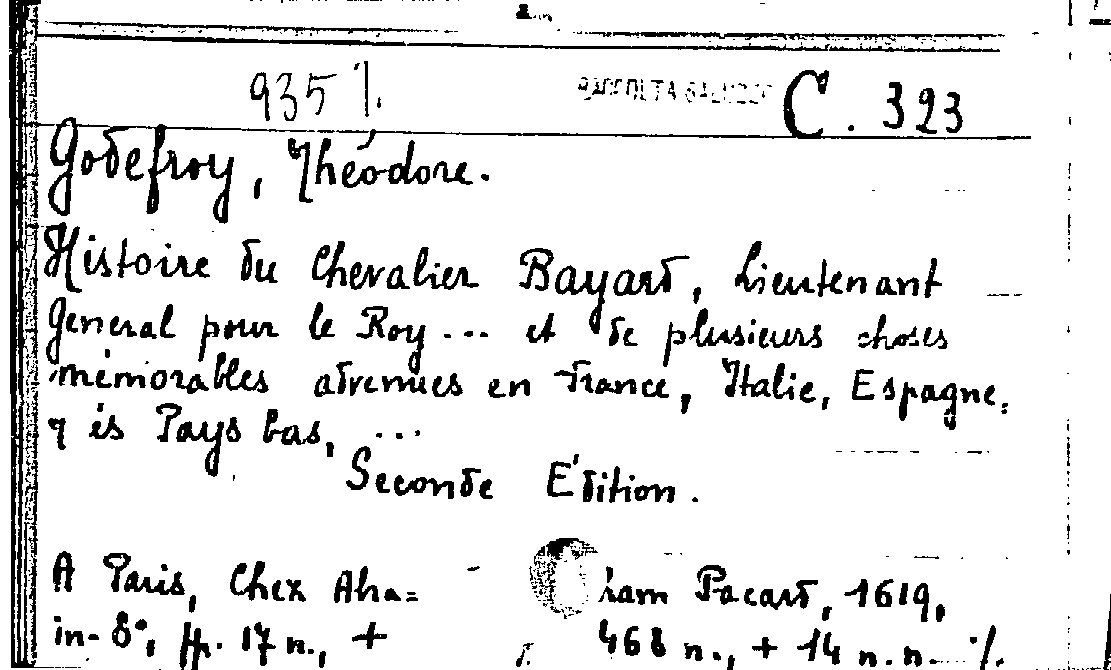 935 %
RACCOLTA GALIZZO C. 323
Godefroy, Théodore.
Histoire du Chevalier Bayard, Lieutenant
General pour le Roy... et de plusieurs choses
mémorables advenues en France, Italie, Espagne,
& és Pays bas, ...
Seconde Edition.
A Paris, Chex Abra= ham Pacard, 1619,
in-8°, pp. 17 n., + 468 n., + 14 n.n. %.